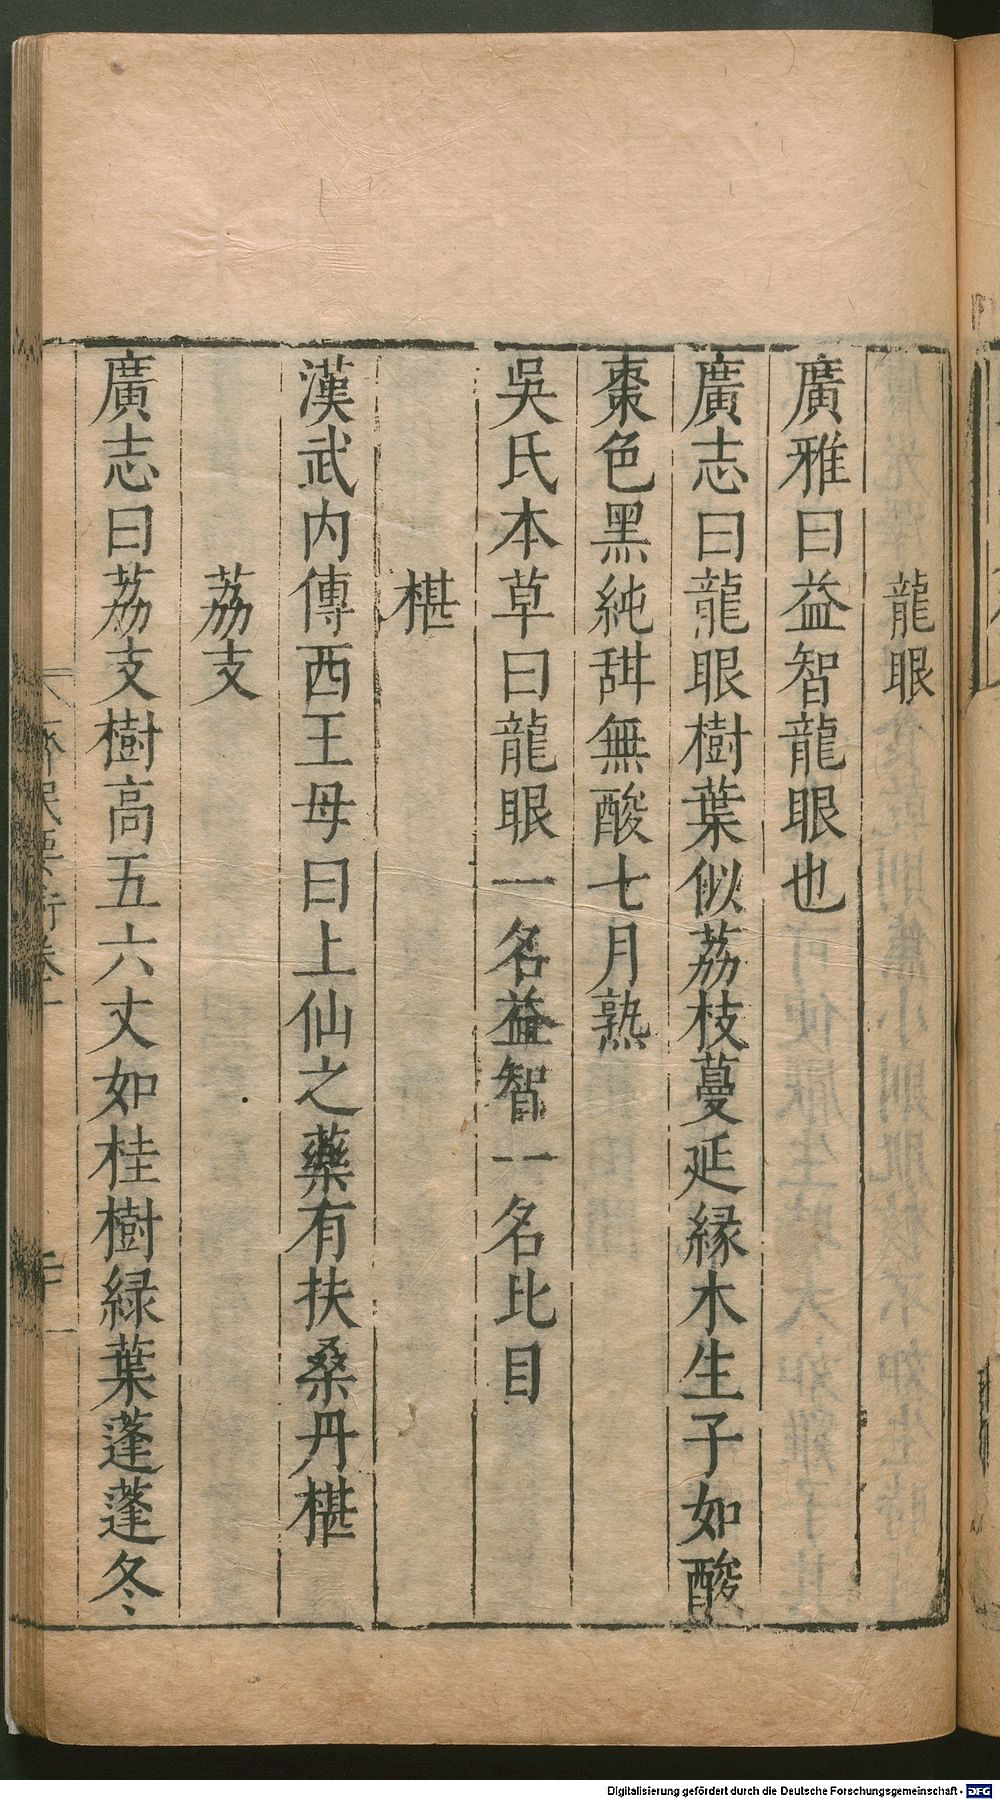 龍眼
廣雅曰益智龍眼也
廣志曰龍眼樹葉似荔枝蔓延緣木生子如酸
棗色黑純甜無酸七月熟
吳氏本草曰龍眼一名益智一名比目
椹
漢武內傳西王母曰上仙之藥有扶桑丹椹
荔支
廣志曰荔支樹高五六丈如桂樹綠葉蓬蓬冬
Digitalisierung gefördert durch die Deutsche Forschungsgemeinschaft - DFG